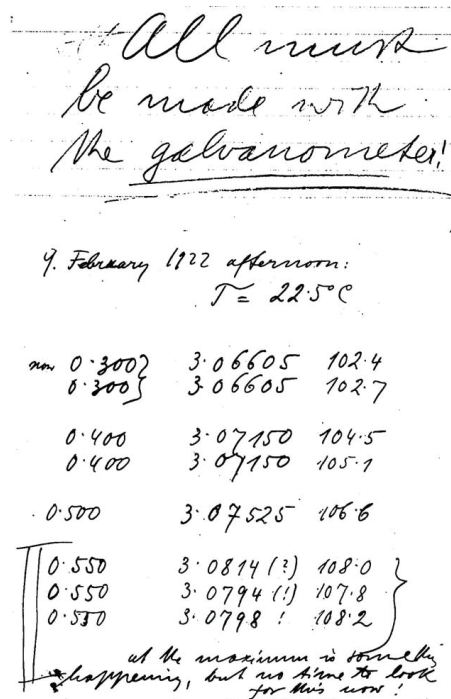 All must
be made with
the galvanometer!
9. February 1922 afternoon:
T = 22.5°C
now 0.300} 3.06605 102.4
0.300} 3.06605 102.7
0.400 3.07150 104.5
0.400 3.07150 105.1
0.500 3.07525 106.6
0.550 3.0814 (?) 108.0
0.550 3.0794 (!) 107.8
0.550 3.0798 ! 108.2
at the maximum is something
happening, but no time to look
for this now.